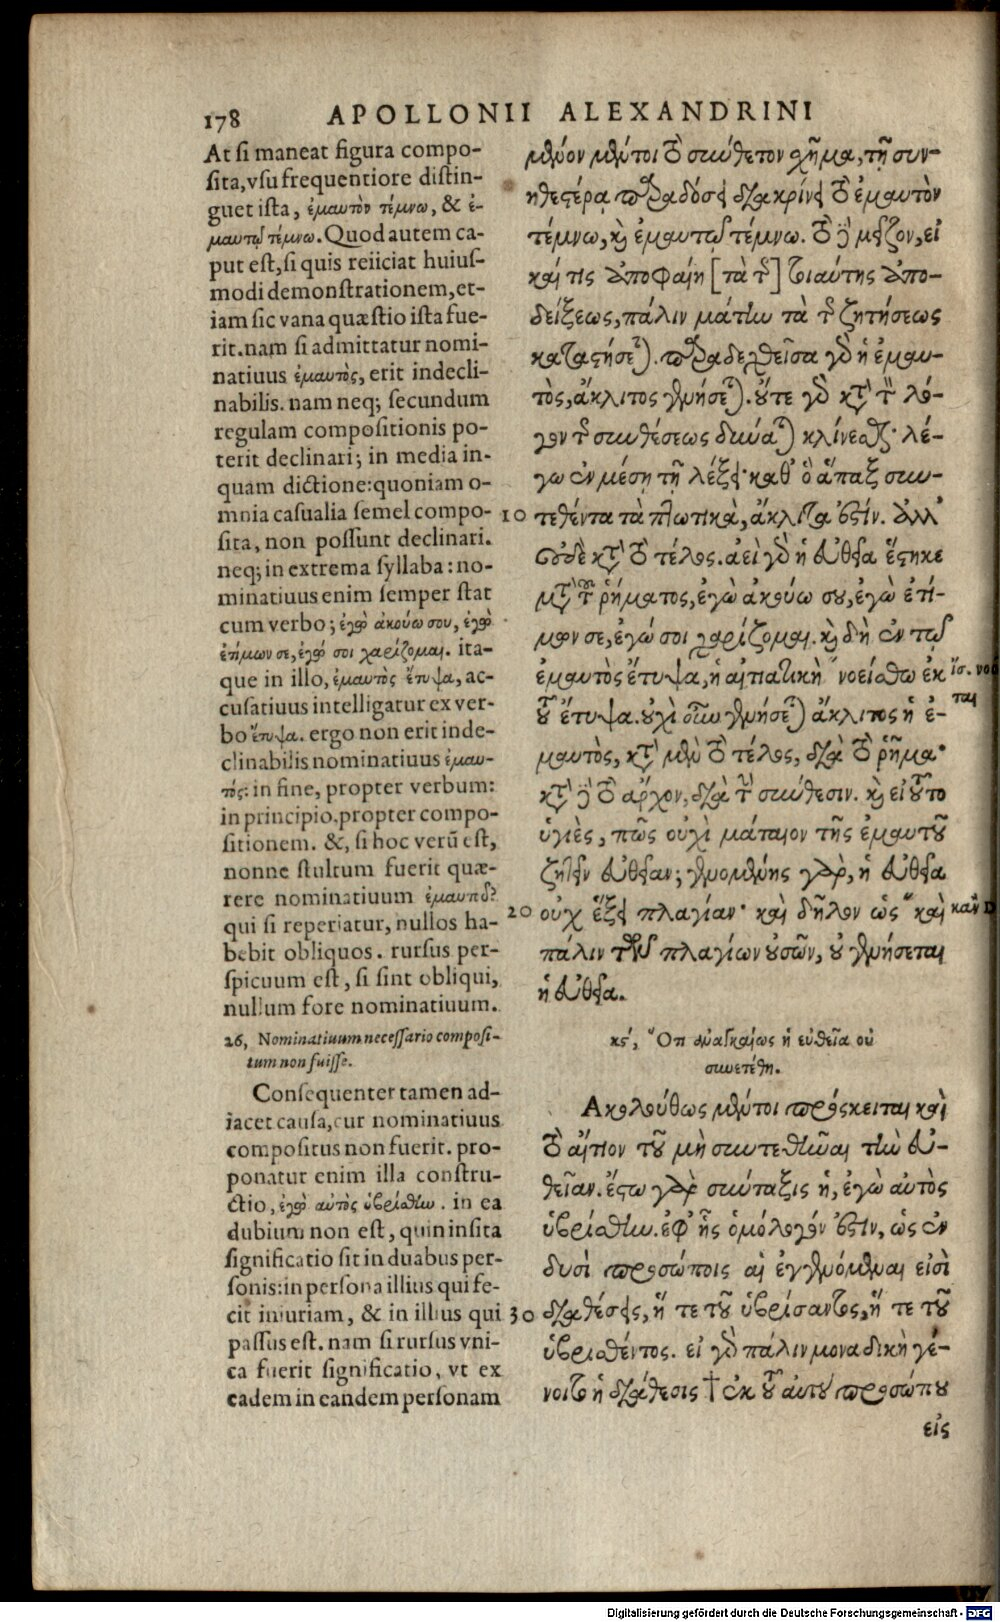 178 APOLLONII ALEXANDRINI
At si maneat figura compo-
sita, vsu frequentiore distin-
guet ista, ἐμαυτὸν τέμνω, & ἐ-
μαυτῷ τέμνω. Quod autem ca-
put est, si quis reiiciat huius-
modi demonstrationem, et-
iam sic vana quæstio ista fue-
rit. nam si admittatur nomi-
natiuus ἐμαυτὸς, erit indecli-
nabilis. nam neq; secundum
regulam compositionis po-
terit declinari; in media in-
quam dictione: quoniam o-
mnia casualia semel compo-
sita, non possunt declinari.
neq; in extrema syllaba: no-
minatiuus enim semper stat
cum verbo; ἐγὼ ἀκούω σου, ἐγὼ
ἐτίμων σε, ἐγώ σοι χαρίζομαι. ita-
que in illo, ἐμαυτὸς ἔτυψα, ac-
cusatiuus intelligatur ex ver-
bo ἔτυψα. ergo non erit inde-
clinabilis nominatiuus ἐμαυ-
τός: in fine, propter verbum:
in principio, propter compo-
sitionem. &, si hoc verũ est,
nonne stultum fuerit quæ-
rere nominatiuum ἐμαυτοῦ?
qui si reperiatur, nullos ha-
bebit obliquos. rursus per-
spicuum est, si sint obliqui,
nullum fore nominatiuum.
26, Nominatiuum necessario composi-
tum non fuisse.
Consequenter tamen ad-
iacet causa, cur nominatiuus
compositus non fuerit. pro-
ponatur enim illa constru-
ctio, ἐγὼ αὐτὸς ὑβρίσθην. in ea
dubium non est, quin insita
significatio sit in duabus per-
sonis: in persona illius qui fe-
cit iniuriam, & in illius qui
passus est. nam si rursus vni-
ca fuerit significatio, vt ex
eadem in eandem personam
μένον μέντοι τὸ σύνθετον σχῆμα, τῇ συν-
ηθεστέρᾳ παραδόσει διακρίνει τὸ ἐμαυτὸν
τέμνω, καὶ ἐμαυτῷ τέμνω. τὸ δὲ μεῖζον, εἰ
καί τις ἀποφαίη [τὰ τῆς] τοιαύτης ἀπο-
δείξεως, πάλιν μάτην τὰ τῆς ζητήσεως
καταστήσεται. παραδεχθεῖσα γὰρ ἡ ἐμαυ-
τὸς, ἄκλιτος γενήσεται. οὔτε γὰρ κατὰ τὸν λό-
γον τῆς συνθέσεως δύναται κλίνεσθαι· λέ-
γω ἐν μέσῃ τῇ λέξει· καθ' ὃ ἅπαξ συν-
10 τεθέντα τὰ πτωτικὰ, ἄκλιτα ἐστίν. ἀλλ'
οὐδὲ κατὰ τὸ τέλος. ἀεὶ γὰρ ἡ εὐθεῖα ἕστηκε
μετὰ τοῦ ῥήματος, ἐγὼ ἀκούω σου, ἐγὼ ἐτί-
μων σε, ἐγώ σοι χαρίζομαι. καὶ δὴ ἐν τῷ
ἐμαυτὸς ἔτυψα, ἡ αἰτιατικὴ νοείσθω ἐκ
τοῦ ἔτυψα. οὐχὶ οὖν γενήσεται ἄκλιτος ἡ ἐ-
μαυτὸς, κατὰ μὲν τὸ τέλος, διὰ τὸ ῥῆμα·
κατὰ δὲ τὸ ἄρχον, διὰ τὴν σύνθεσιν. καὶ εἰ τοῦτο
ὑγιὲς, πῶς οὐχὶ μάταιον τῆς ἐμαυτοῦ
ζητεῖν εὐθεῖαν; γενομένης γὰρ, ἡ εὐθεῖα
20 οὐχ ἕξει πλαγίαν· καὶ δῆλον ὡς καὶ
πάλιν τῶν πλαγίων οὐσῶν, οὐ γενήσεται
ἡ εὐθεῖα.
κϛ, Ὅτι ἀναγκαίως ἡ εὐθεῖα οὐ
συνετέθη.
Ἀκολούθως μέντοι πρόσκειται καὶ
τὸ αἴτιον τοῦ μὴ συντεθῆναι τὴν εὐ-
θεῖαν. ἔστω γὰρ σύνταξις ἡ, ἐγὼ αὐτὸς
ὑβρίσθην. ἐφ' ἧς ὁμόλογόν ἐστιν, ὡς ἐν
δυσὶ προσώποις αἱ ἐγγενόμεναι εἰσὶ
30 διαθέσεις, ἥ τε τοῦ ὑβρίσαντος, ἥ τε τοῦ
ὑβρισθέντος. εἰ γὰρ πάλιν μοναδικὴ γέ-
νοιτο ἡ διάθεσις † ἐκ τοῦ αὐτοῦ προσώπου
εἰς